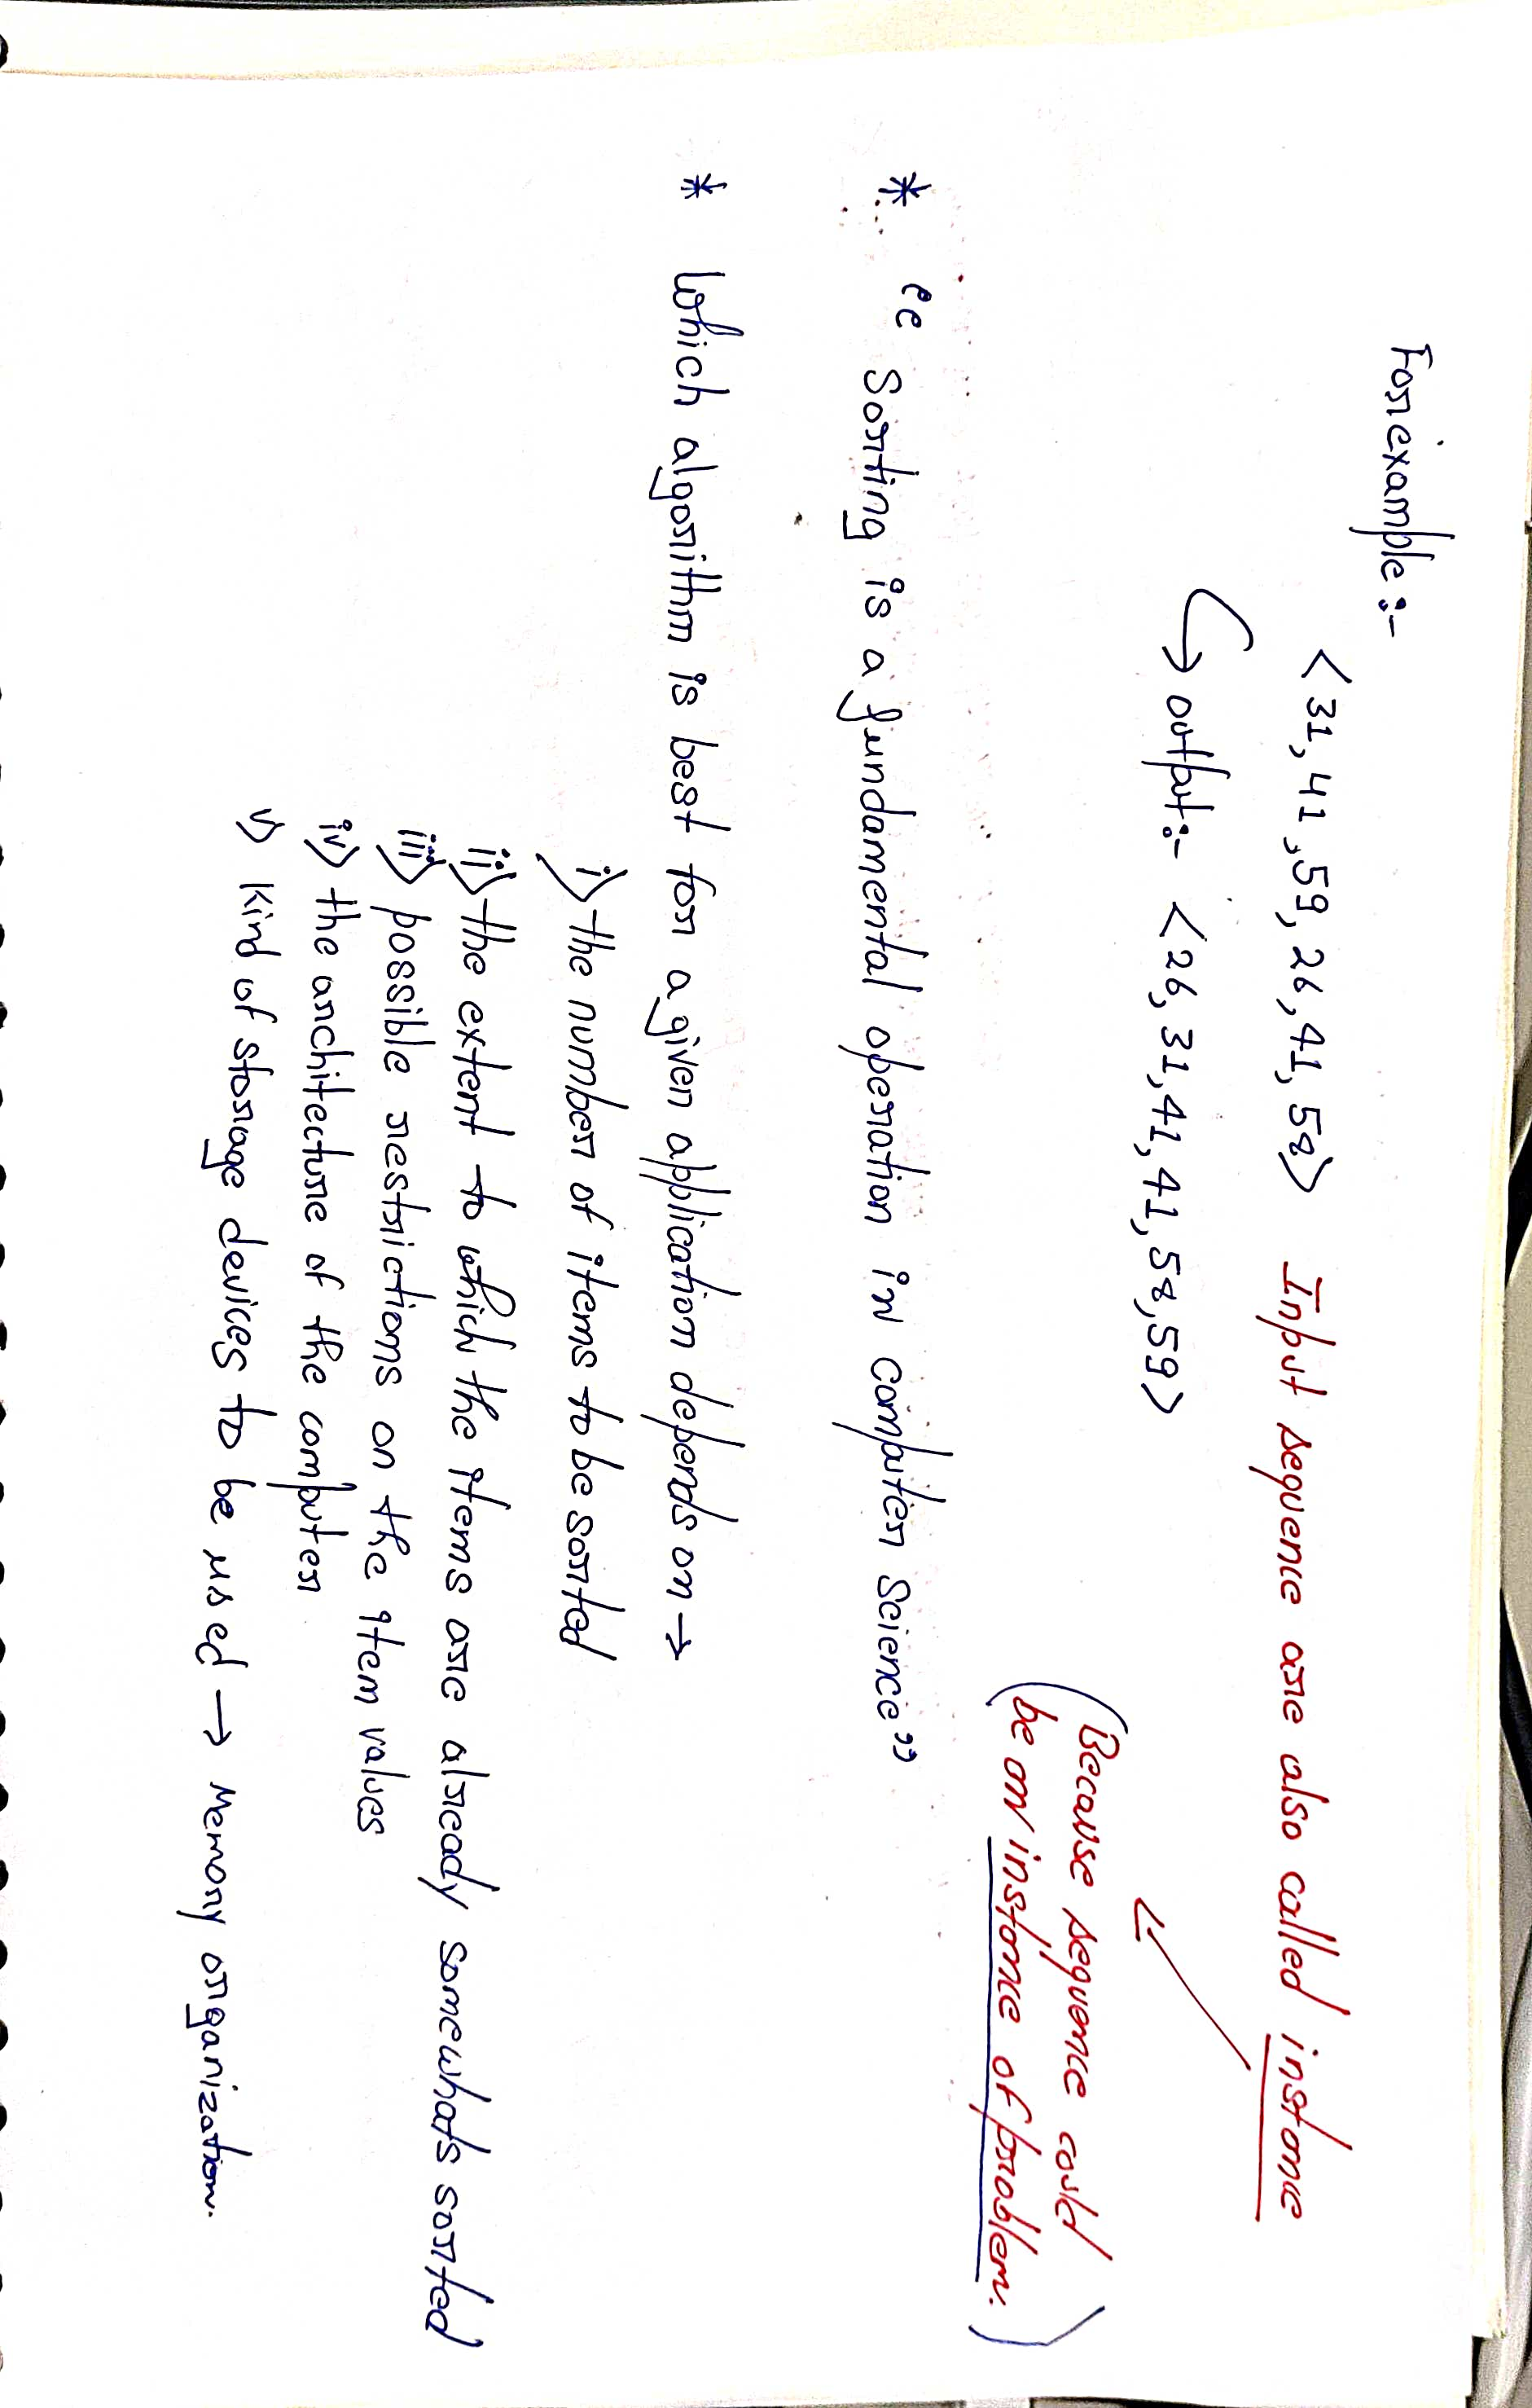 For example :-
<31, 41, 59, 26, 41, 58> Input sequence are also called instance
↳ output :- <26, 31, 41, 41, 58, 59>
(Because sequence could
be an instance of problem.)
* “ Sorting is a fundamental operation in computer science ”
* Which algorithm is best for a given application depends on →
i) the number of items to be sorted
ii) the extent to which the items are already somewhats sorted
iii) possible restrictions on the item values
iv) the architecture of the computer
v) Kind of storage devices to be used → Memory organization.